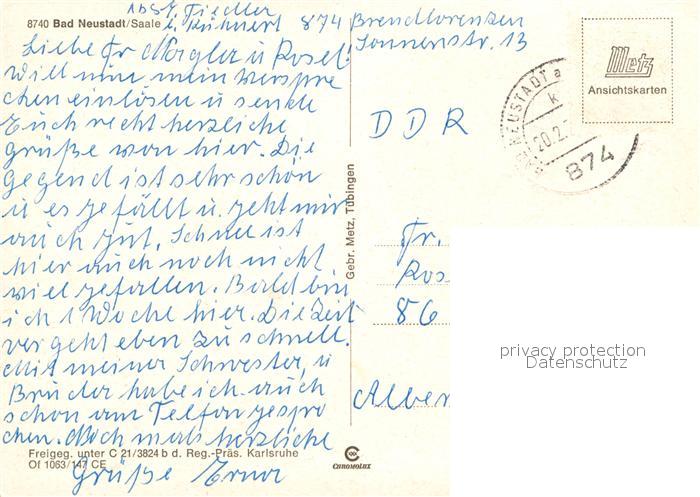 8740 Bad Neustadt/Saale
Abs. Fiedler
874 Brendlorenzen
Sonnenstr. 13
Liebe Fr. Nagler u Rosel.
Will nun mein Verspre
chen einlösen u sende
Euch recht herzliche
grüße von hier. Die
Gegend ist sehr schön
u es gefällt u. geht mir
auch gut. Schnee ist
hier auch noch nicht
viel gefallen. Bald bin
ich 1 Woche hier. Die Zeit
vergeht eben zu schnell.
Mit meiner Schwester, u
Bruder habe ich auch
schon am Telfon gespro
chen. Noch mals herzliche
Grüße Erna
Freigeg. unter C 21/3824 b d. Reg.-Präs. Karlsruhe
Of 1063/147 CE
Gebr. Metz, Tübingen
CHROMOLUX
Metz
Ansichtskarten
NEUSTADT a
k
20.2.
874
DDR
Fr.
Ros
86
Alber
privacy protection
Datenschutz